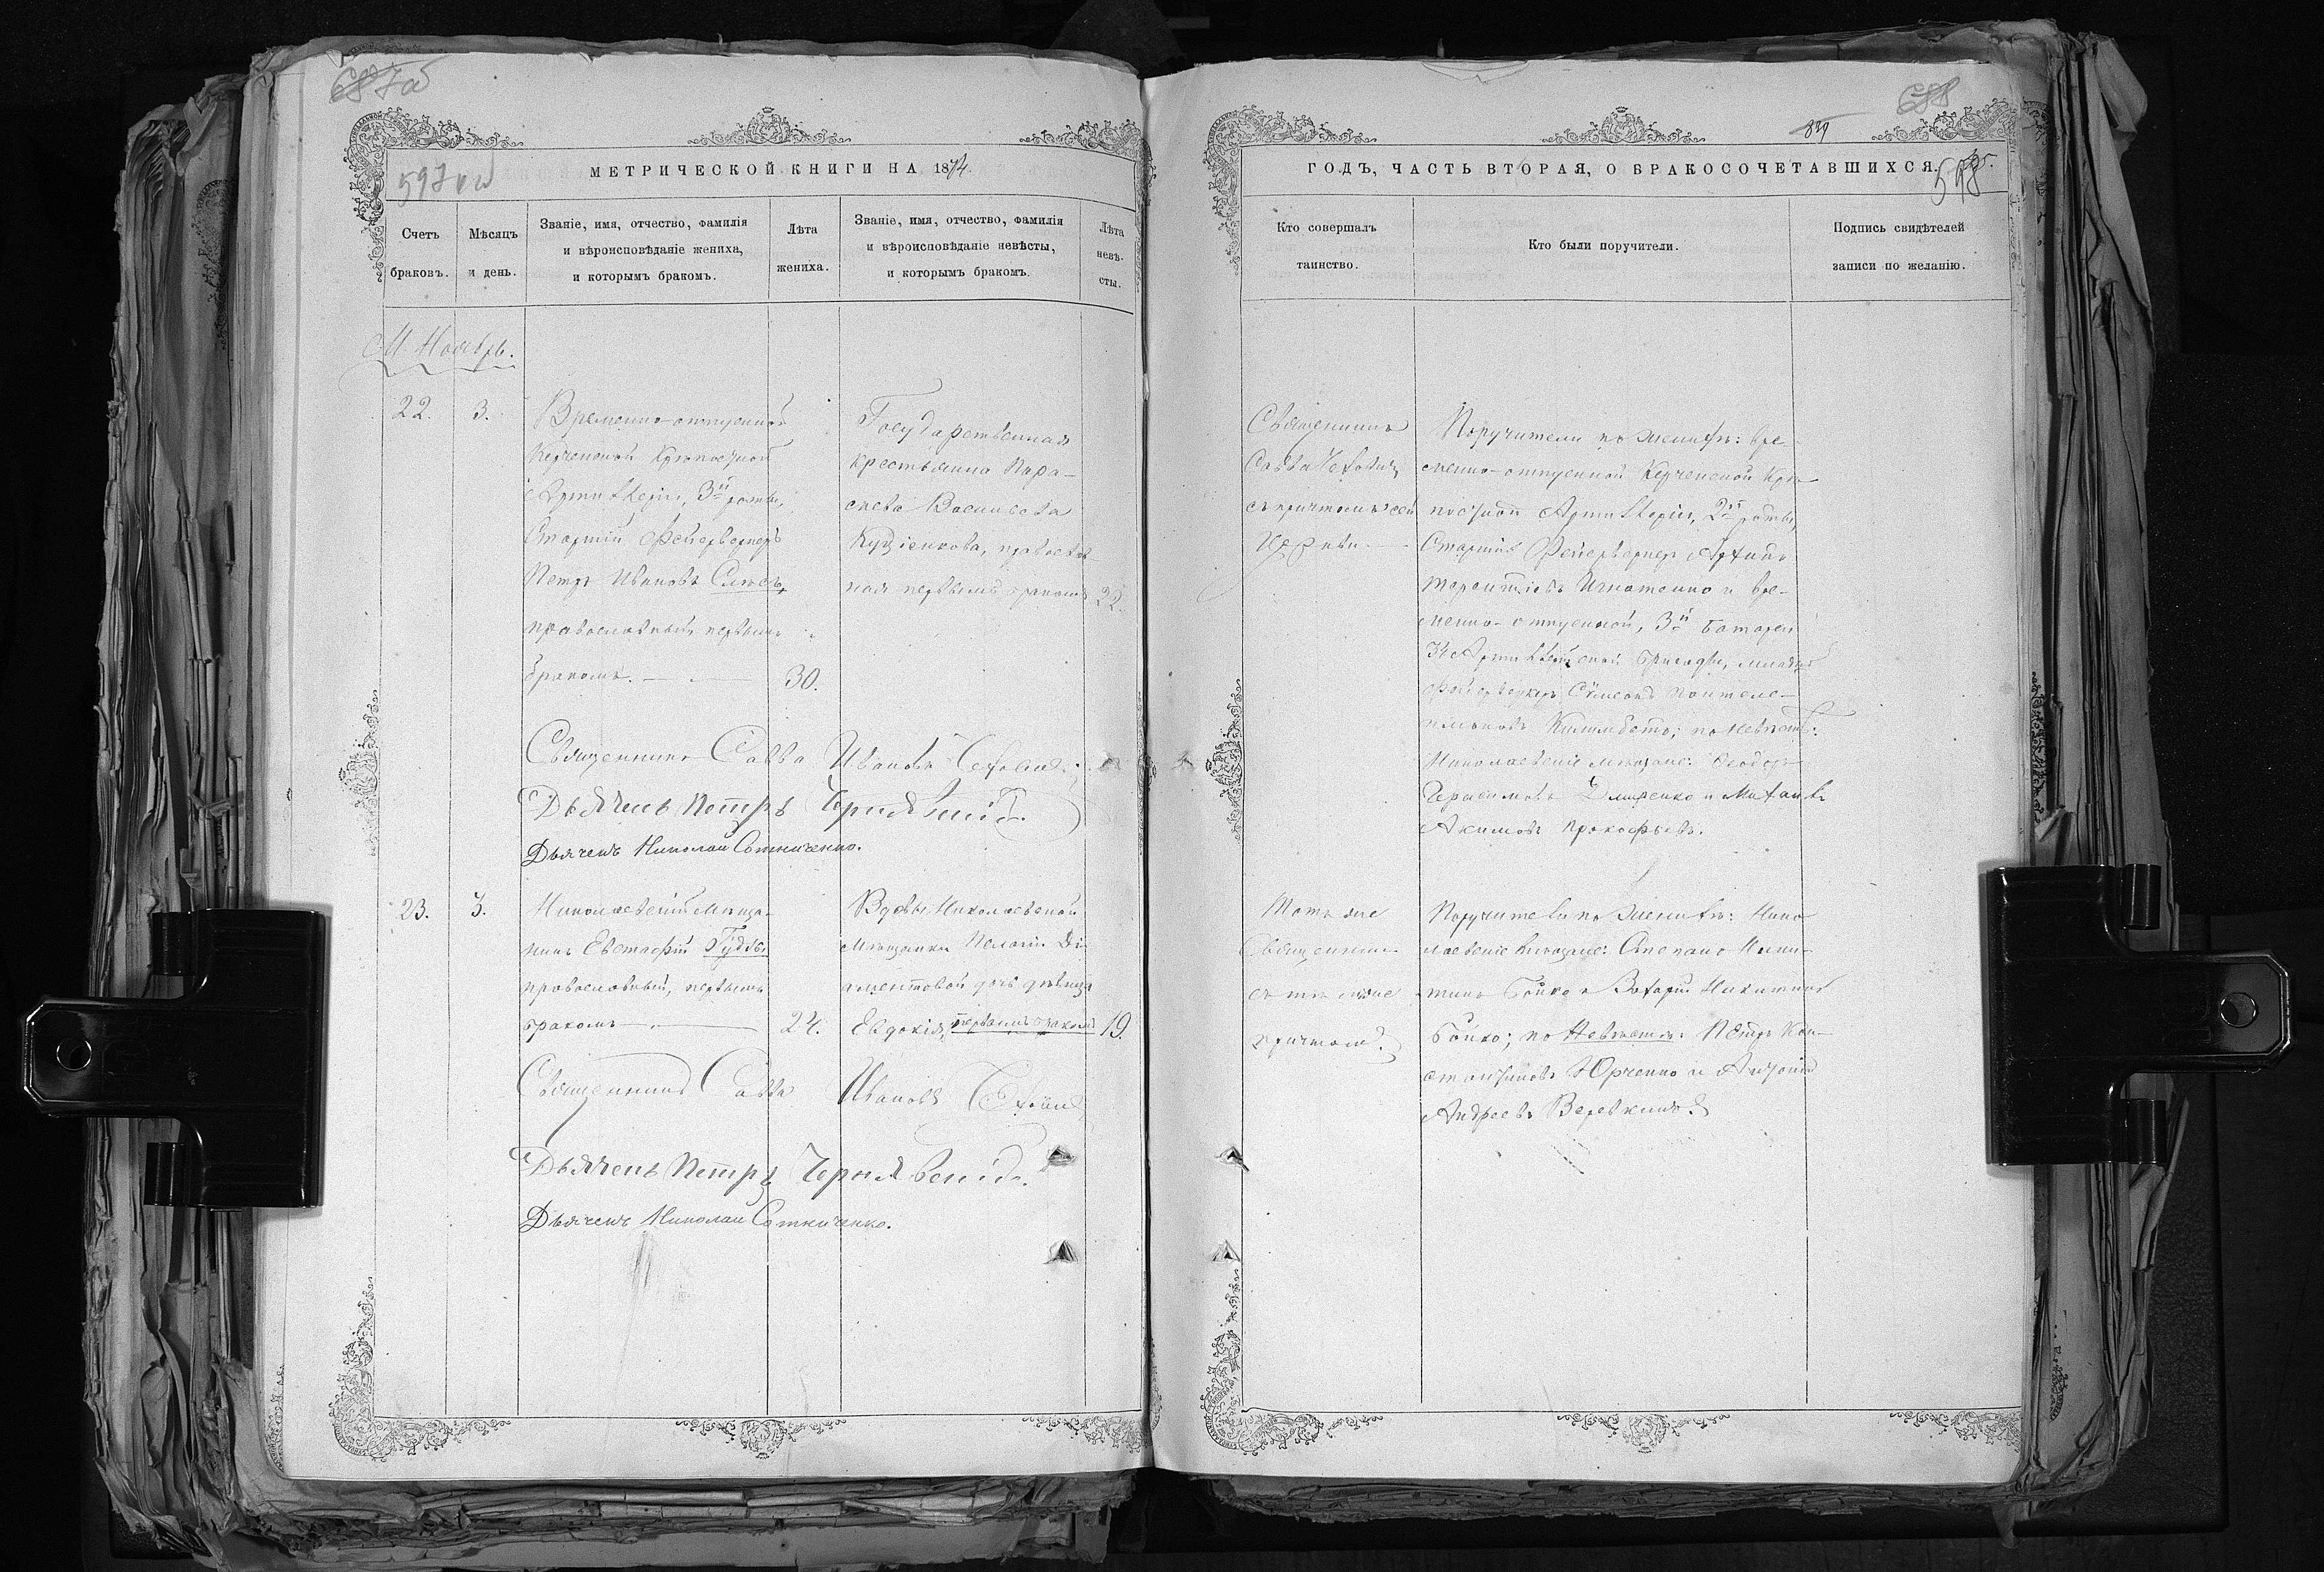 МЕТРИЧЕСКОЙ КНИГИ НА 1874
Счетъ браковъ.
Мѣсяцъ и день.
Званіе, имя, отчество, фамилія
и вѣроисповѣданіе жениха,
и которымъ бракомъ.
Лѣта жениха.
Званіе, имя, отчество, фамилія
и вѣроисповѣданіе невѣсты,
и которымъ бракомъ.
Лѣта невѣ-
сты.
М. Ноябрь.
22.
3.
Временно-отпускной
Керченской Крѣпостной
Артиллеріи, 3й роты,
Старшій Фейерверкеръ
Петръ Ивановъ
православный, первымъ
бракомъ.
30.
Государственная
крестьянка Пара-
скева Васильева
православ-
ная первымъ бракомъ
22.
Священникъ Савва Ивановъ
Дьячекъ Петръ Чернявскій.
Дьячекъ Николай Сотниченко.
23.
3.
Николаевскій мѣща-
нинъ Евстафій
православный, первымъ
бракомъ
24.
Вдовы Николаевской
мѣщанки Пелагіи Ді-
амантовой дочь дѣвица
Евдокія, первымъ бракомъ
19.
Священникъ Савва Ивановъ
Дьячекъ Петръ Чернявскій.
Дьячекъ Николай Сотниченко.
839
ГОДЪ, ЧАСТЬ ВТОРАЯ, О БРАКОСОЧЕТАВШИХСЯ.
Кто совершалъ
таинство.
Кто были поручители.
Подпись свидѣтелей
записи по желанію.
Священникъ
Савва
съ причтомъ сей
Церкви.
Поручители по женихѣ: вре-
менно-отпускной Керченской Крѣ-
постной Артиллеріи, 2й роты,
Старшій Фейерверкеръ Архипъ
Терентіевъ Игнатенко и вре-
менно-отпускной, 3й Батареи
Артиллерійской бригады, младшій
Фейерверкеръ Сѵмеонъ Пантеле-
имоновъ по невѣстѣ:
Николаевскіе мѣщане: Ѳеодоръ
Герасимовъ и Михаилъ
Акимовъ Прокофьевъ.
Тотъ же
Священникъ
съ тѣмъ же
причтомъ.
Поручители по женихѣ: Нико-
лаевскіе мѣщане: Степанъ Ники-
тинъ Бойко и Захарій Никитинъ
Бойко; по невѣстѣ: Петръ Кон-
стантиновъ Юрченко и Антоній
Андреевъ Веревкинъ.